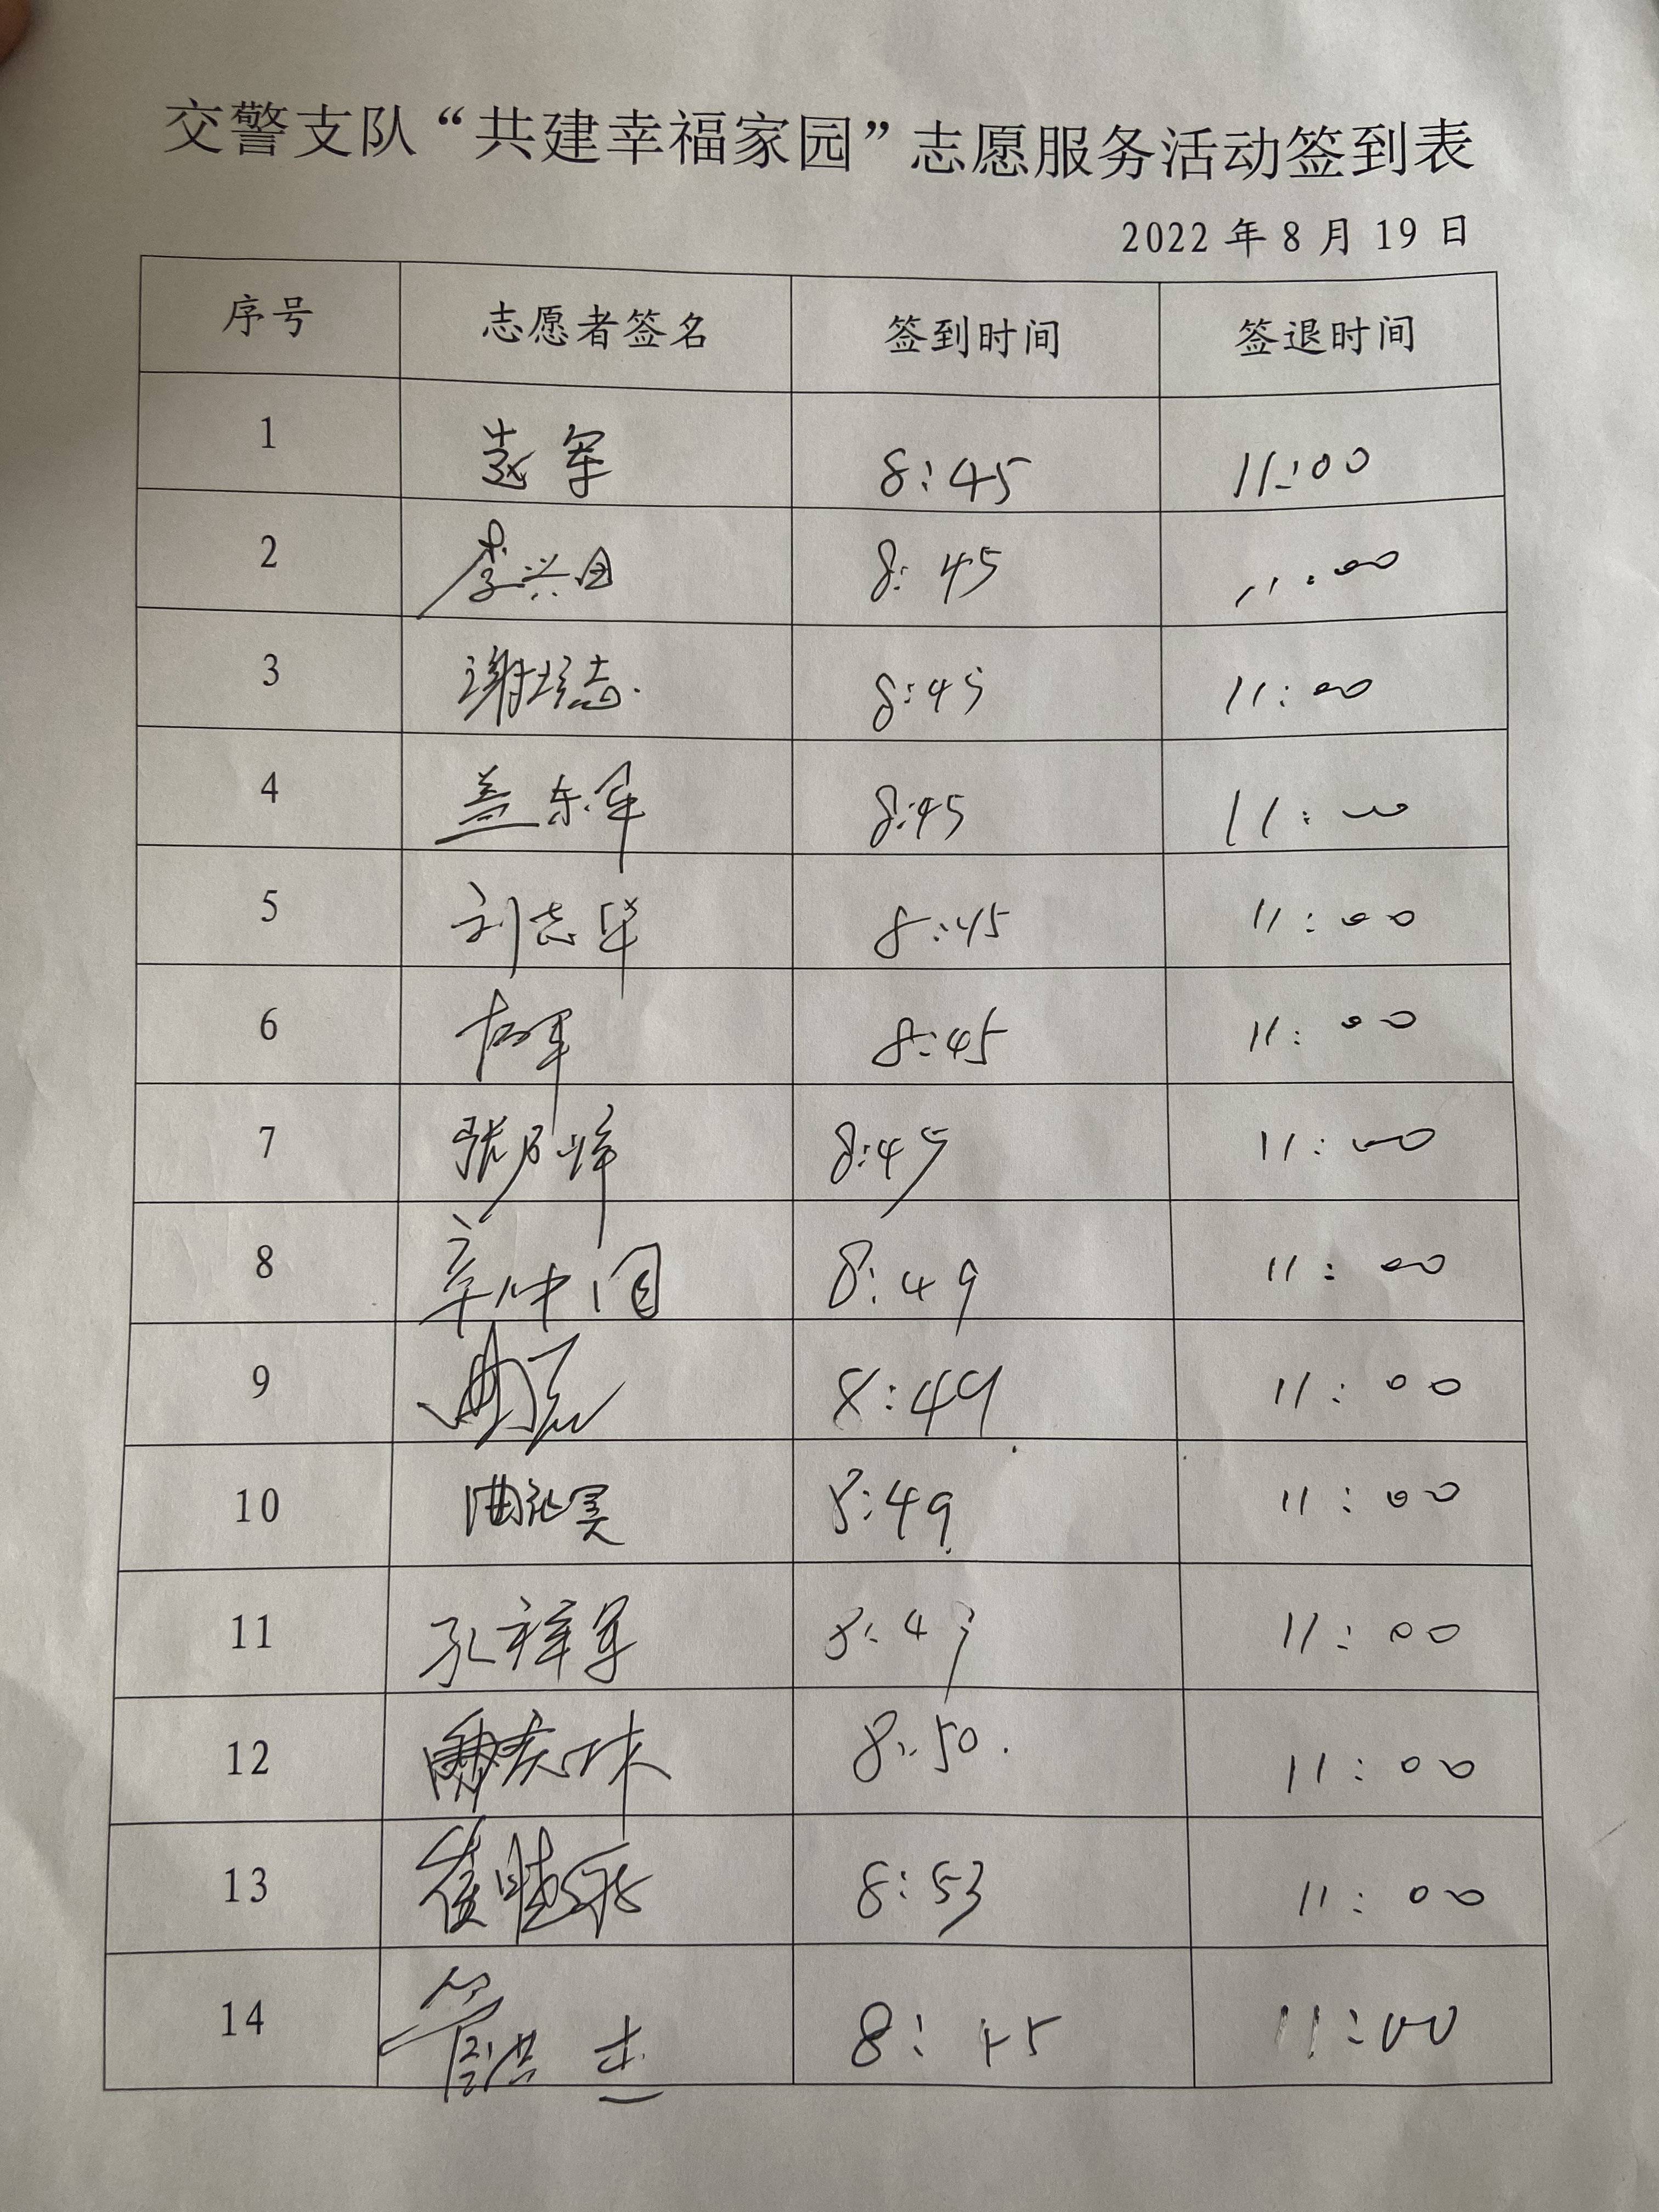 交警支队“共建幸福家园”志愿服务活动签到表
2022年8月19日
序号 志愿者签名 签到时间 签退时间
1 赵军 8:45 11:00
2 李兴田 8:45 11:00
3 谢培志 8:45 11:00
4 盖东军 8:45 11:00
5 刘志华 8:45 11:00
6 8:45 11:00
7 8:45 11:00
8 8:49 11:00
9 8:49 11:00
10 8:49 11:00
11 孔祥军 8:49 11:00
12 8:50 11:00
13 8:53 11:00
14 8:45 11:00